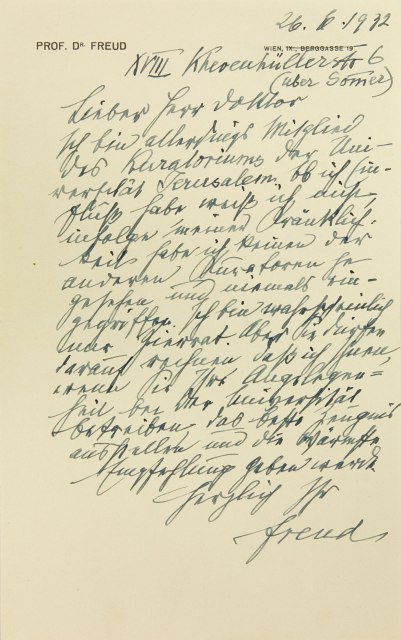 26. V. 1932
PROF. DR FREUD
WIEN, IX., BERGGASSE 19
XVIII Khevenhüllerstr 6
(über Somer)
Lieber Herr Doktor
Ich bin allerdings Mitglied
des Kuratoriums der Uni-
versität Jerusalem, ob ich Ein-
fluß habe weiß ich nicht,
infolge meiner Kränklich-
keit habe ich keinen der
anderen Kuratoren je
gesehen und niemals ein-
gegriffen. Ich bin wahrscheinlich
nur Zierrat. Aber Sie dürfen
darauf rechnen daß ich Ihnen,
wenn Sie Ihre Angelegen=
heit bei der Universität
betreiben, das beste Zeugnis
ausstellen und die wärmste
Empfehlung geben werde.
Herzlich Ihr
Freud